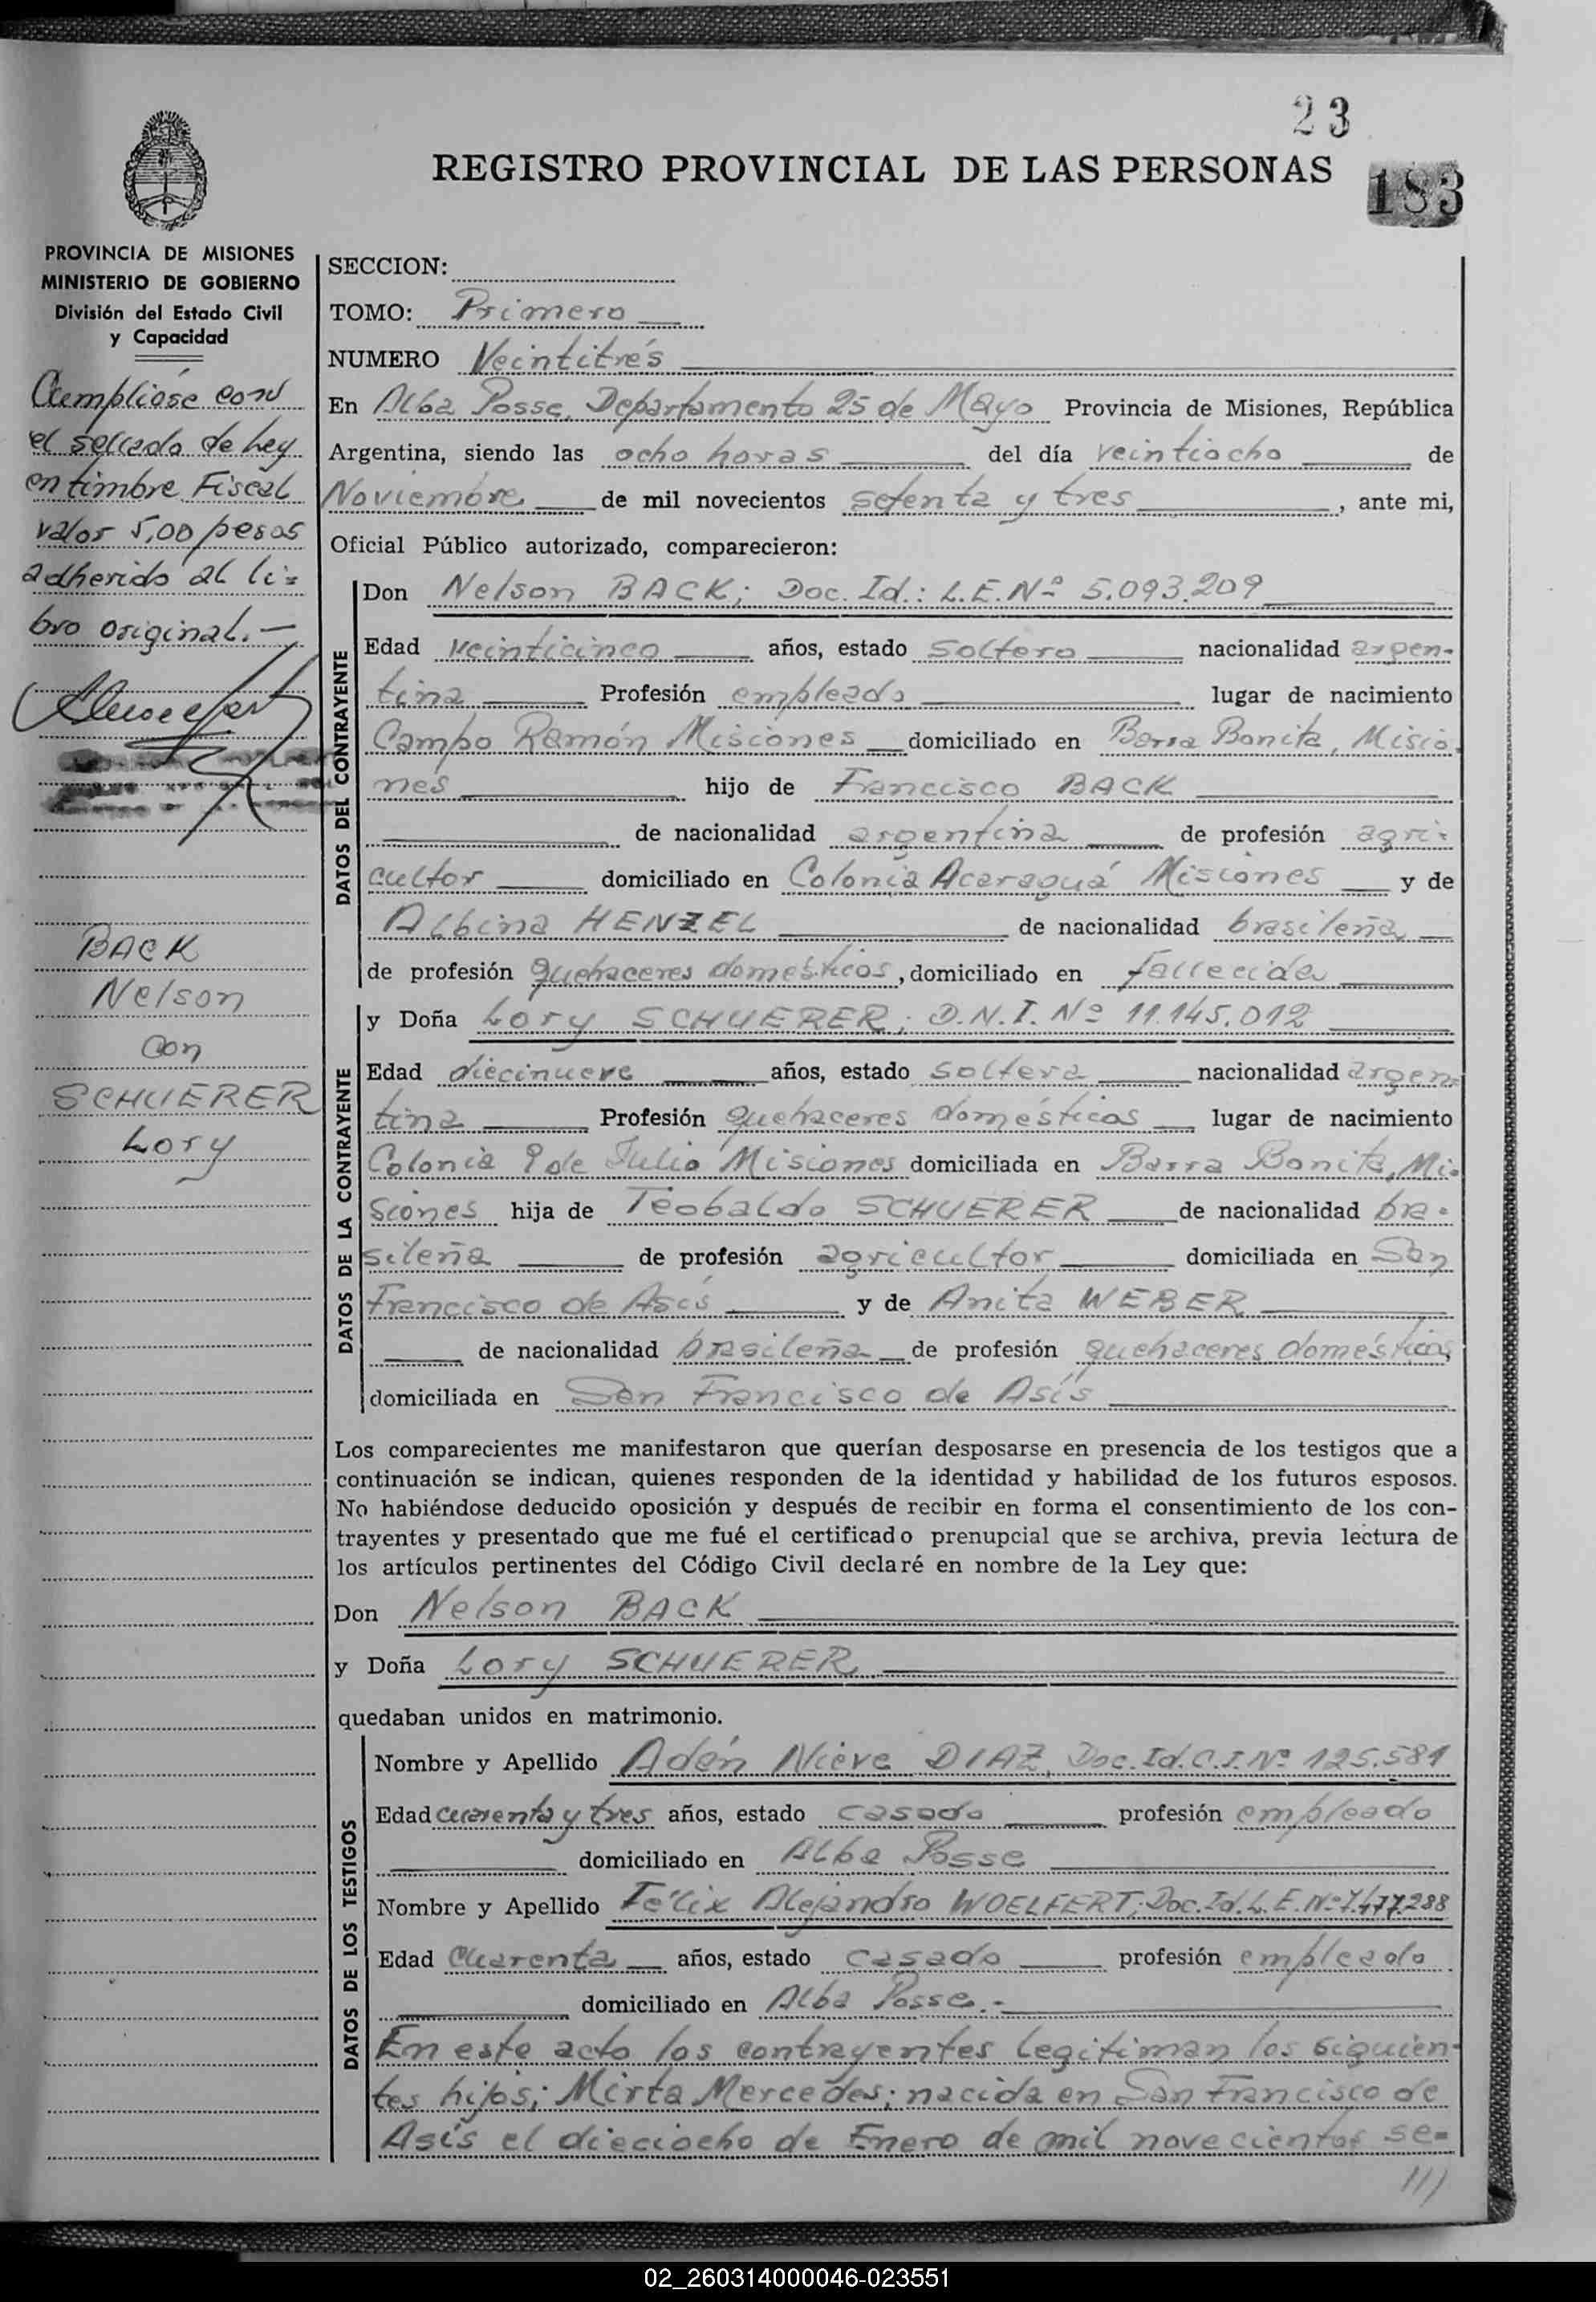 23
REGISTRO PROVINCIAL DE LAS PERSONAS
183
PROVINCIA DE MISIONES
MINISTERIO DE GOBIERNO
División del Estado Civil
y Capacidad
Cumplióse con
el sellado de Ley
en timbre Fiscal
valor 5,00 pesos
adherido al li=
bro original.—
BACK
Nelson
con
SCHUERER
Lory
SECCION:
TOMO: Primero
NUMERO Veintitrés
En Alba Posse, Departamento 25 de Mayo Provincia de Misiones, República
Argentina, siendo las ocho horas del día veintiocho de
Noviembre de mil novecientos setenta y tres, ante mi,
Oficial Público autorizado, comparecieron:
DATOS DEL CONTRAYENTE
Don Nelson BACK; Doc. Id.: L.E. Nº 5.093.209
Edad veinticinco años, estado soltero nacionalidad argen-
tina Profesión empleado lugar de nacimiento
Campo Ramón Misiones domiciliado en Barra Bonita, Misio
nes hijo de Francisco BACK
de nacionalidad argentina de profesión agri-
cultor domiciliado en Colonia Acaraguá Misiones y de
Albina HENZEL de nacionalidad brasileña
de profesión quehaceres domésticos, domiciliado en fallecida
DATOS DE LA CONTRAYENTE
y Doña Lory SCHUERER; D.N.I. Nº 11.145.012
Edad diecinueve años, estado soltera nacionalidad argen=
tina Profesión quehaceres domésticos lugar de nacimiento
Colonia 9 de Julio Misiones domiciliada en Barra Bonita, Mi-
siones hija de Teobaldo SCHUERER de nacionalidad bra-
sileña de profesión agricultor domiciliada en San
Francisco de Asís y de Anita WEBER
de nacionalidad brasileña de profesión quehaceres domésticos,
domiciliada en San Francisco de Asís
Los comparecientes me manifestaron que querían desposarse en presencia de los testigos que a
continuación se indican, quienes responden de la identidad y habilidad de los futuros esposos.
No habiéndose deducido oposición y después de recibir en forma el consentimiento de los con-
trayentes y presentado que me fué el certificado prenupcial que se archiva, previa lectura de
los artículos pertinentes del Código Civil declaré en nombre de la Ley que:
Don Nelson BACK
y Doña Lory SCHUERER
quedaban unidos en matrimonio.
DATOS DE LOS TESTIGOS
Nombre y Apellido Adén Nieve DIAZ, Doc. Id. C.I. Nº 125.581
Edad cuarenta y tres años, estado casado profesión empleado
domiciliado en Alba Posse
Nombre y Apellido Félix Alejandro WOELFERT; Doc. Id. L.E. Nº 7.477.288
Edad cuarenta años, estado casado profesión empleado
domiciliado en Alba Posse.-
En este acto los contrayentes legitiman los siguien-
tes hijos; Mirta Mercedes; nacida en San Francisco de
Asís el dieciocho de Enero de mil novecientos se=
///
02_260314000046-023551